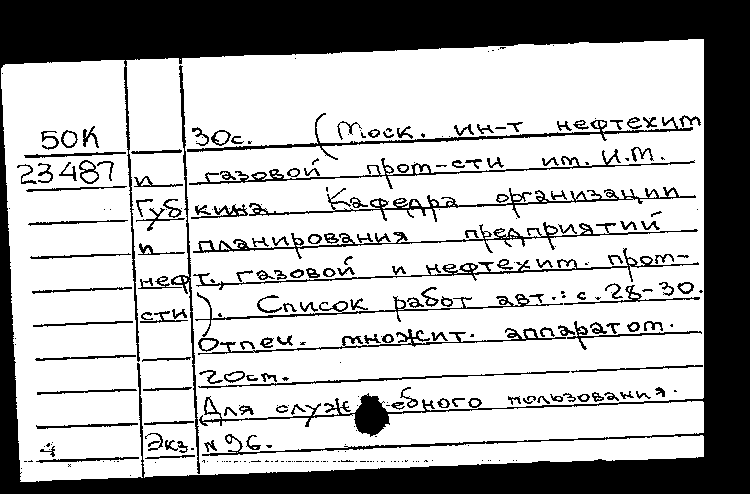 50К 30с. (Моск. ин-т нефтехим
23487 и газовой пром-сти им. И.М.
Губкина. Кафедра организации
и планирования предприятий
нефт., газовой и нефтехим. пром-
сти). Список работ авт.: с. 28-30.
Отпеч. множит. аппаратом.
20ст.
Для служебного пользования.
4 Экз. N 96.